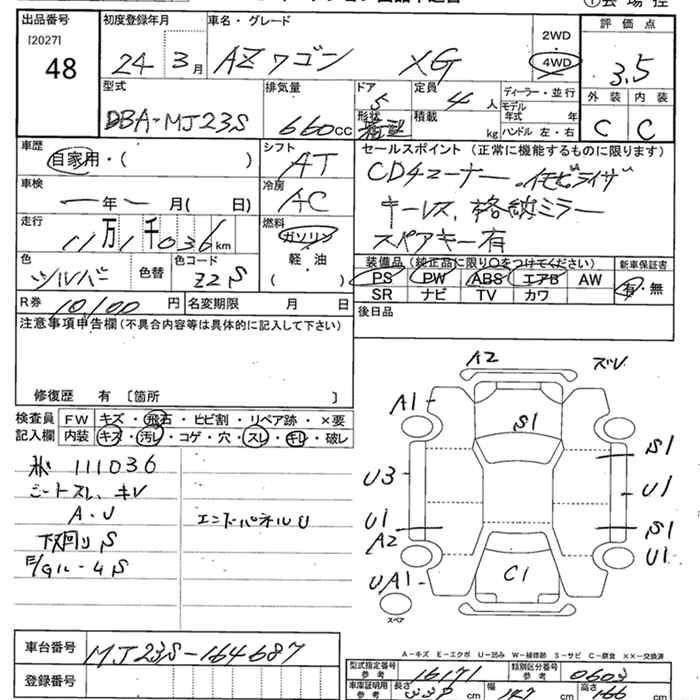 出品番号
[2027]
48
初度登録年月
24 3月
車名・グレード
AZワゴン XG
2WD
4WD
評価点
3.5
外装 内装
C C
型式
DBA-MJ23S
排気量
660cc
ドア 5
形状
定員 4人
積載 kg
ディーラー・並行
モデル年式 年
ハンドル 左・右
車歴
自家用・( )
シフト
AT
セールスポイント (正常に機能するものに限ります)
CDチューナー、イモビライザ
キーレス、格納ミラー
スペアキー有
車検
ー年ー月( 日)
冷房
AC
走行
11万1千036km
燃料
ガソリン
軽・油
( )
色
シルバー
色替
色コード
Z2S
装備品 (純正品に限り〇をつけてください)
PS PW ABS エアB AW
SR ナビ TV カワ
新車保証書
有・無
R券 10100円
名変期限 月 日
後日品
注意事項申告欄(不具合内容等は具体的に記入して下さい)
修復歴 有 〔箇所 〕
検査員記入欄
FW キズ・飛石・ヒビ割・リペア跡・×要
内装 キズ・汚レ・コゲ・穴・スレ・キレ・破レ
111036
シートスレ、キレ
A・U
エンドパネルU
下回りS
A2
A1
S1
S1
U3
U1
U1
S1
A2
U1
UA1
C1
スペア
A-キズ E-エクボ U-凹み W-補修跡 S-サビ C-腐食 ××-交換済
車台番号
MJ23S-164687
登録番号
型式指定番号 参考
16171
類別区分番号 参考
0603
車庫証明用 参考
長さ 339cm
幅 147cm
高さ 166cm